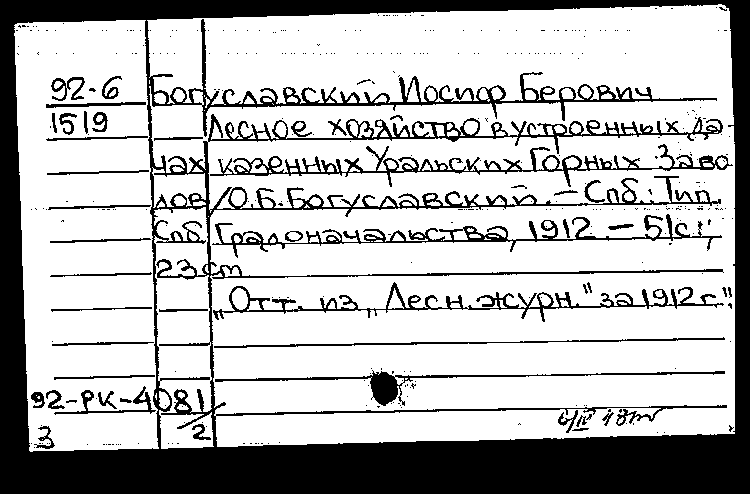 92-6 Богуславский, Иосиф Берович
1519 Лесное хозяйство в устроенных да-
чах казенных Уральских Горных Заво
дов /О.Б.Богуславский. – Спб.: Тип.
Спб. Градоначальства, 1912. – 51с.;
23 cm
„Отт. из „Лесн. журн." за 1912 г."
92-РК-4081/2
3